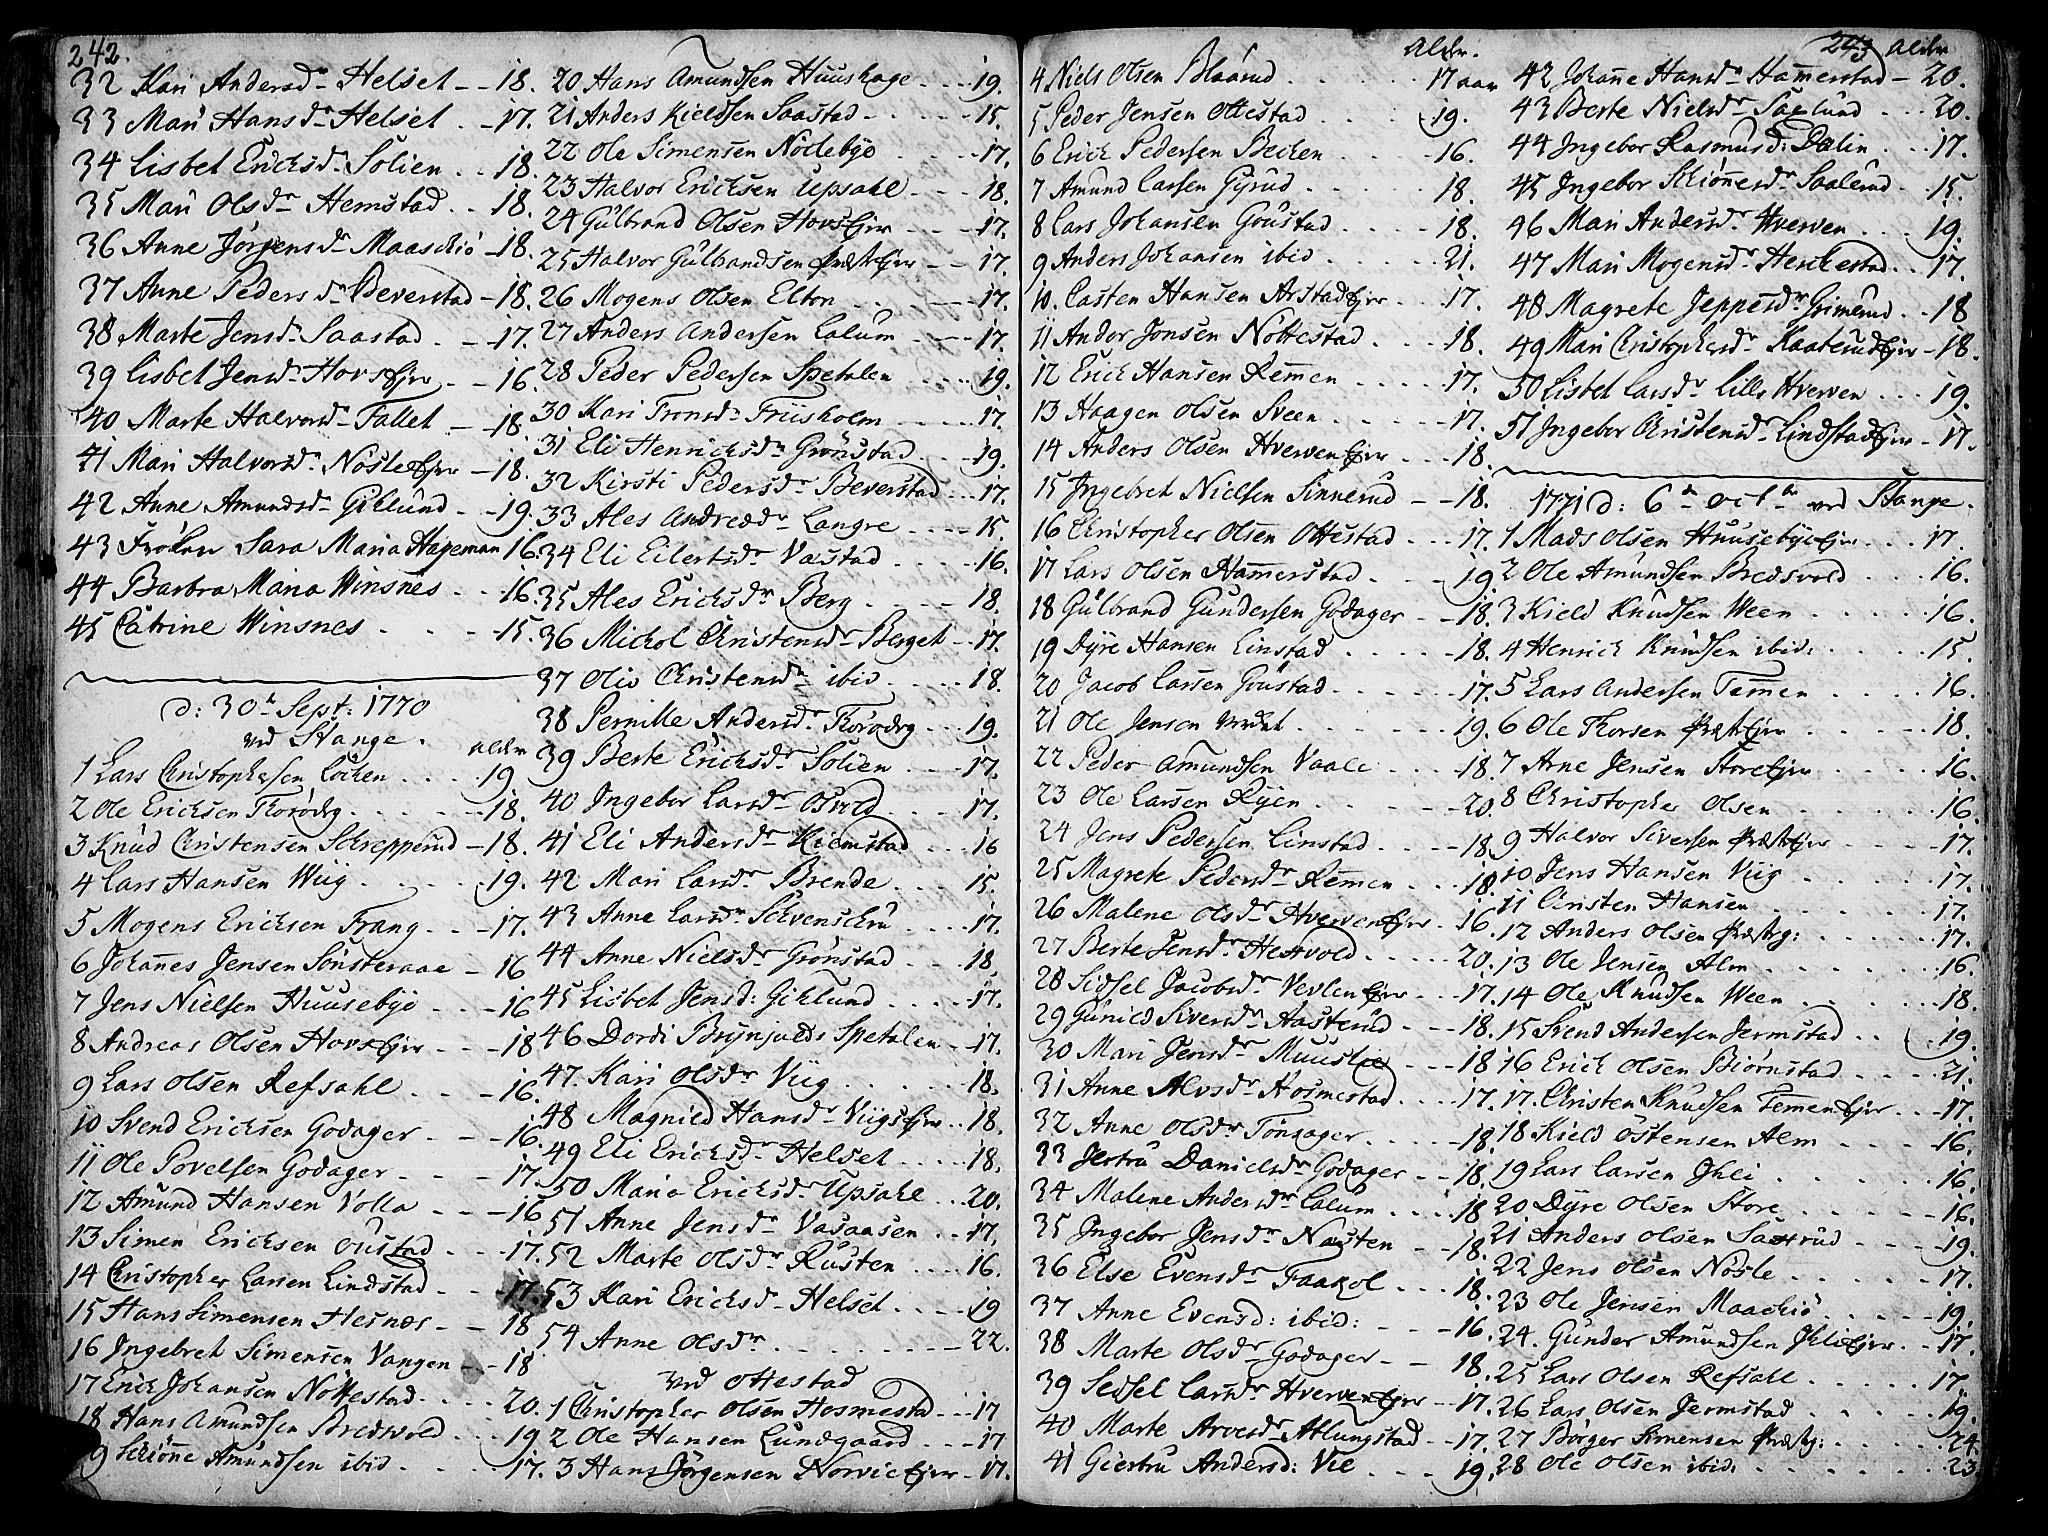 242.
32 Kari Andersdr Helset - - 18.
33 Mari Hansdr Helset . - 17.
34 Lisbet Ericksdr Solien . . 18.
35 Mari Olsdr Hemstad . . 18.
36 Anne Jörgensdr Maaschiö - 18.
37 Anne Pedersdr Beverstad - 18.
38 Marte Jensdr Saastad . - 17.
39 Lisbet Jensdr Hovs Ejer - - 16.
40 Marte Halvorsdr Fallet - - 18
41 Mari Halvorsdr Nösle Ejer - 18.
42 Anne Amundsdr Gillund . - 19.
43 Fröken Sara Maria Hageman 16.
44 Barbra Maria Winsnes . . 16
45 Catrine Winsnes . . . - 15.
d: 30te Sept: 1770
ved Stange.
alder
1 Lars Christophersen Löcken . . . . 19
2 Ole Ericksen Thorödeg . . . . 18.
3 Knud Christensen Schrepperud - 18.
4 Lars Hansen Wiig . . . . 19.
5 Mogens Ericksen Frang . - - 17.
6 Johannes Jensen Sönsteraae - 16
7 Jens Nielsen Huusebye - - 16
8 Andreas Olsen Hovs Ejer - - - 18
9 Lars Olsen Refsahl . . - - 16.
10 Svend Ericksen Godager - - - 16.
11 Ole Povelsen Godager - - - 17.
12 Amund Hansen Volla - - - 16
13 Simen Ericksen Oustad - - - 17.
14 Christopher Larsen Lindstad - - 17.
15 Hans Simensen Hesnæs - - 18
16 Ingebret Simensen Vangen - - 18
17 Erich Johansen Nöttestad . . . . 20.
18 Hans Amundsen Bredvold . . . 19
9 Schiönne Amundsen ibid . . . . 17.
20 Hans Amundsen Huushage - - - 19.
21 Anders Kieldsen Saastad - . . . . 15.
22 Ole Simensen Nödebye . . . - - 17.
23 Halvor Ericksen Upsahl - - - 18.
24 Gulbrand Olsen Hovs Ejer - - - 17.
25 Halvor Gulbrandsen Præst Ejer - - 17.
26 Mogens Olsen Elton . . . - - - 17.
27 Anders Andersen Lalum - - - 17.
28 Peder Pedersen Spetalen . . . . . 19.
30 Kari Tronsdr Friisholm . . . . . 17.
31 Eli Henricksdr Grönstad . . . . 19.
32 Kirsti Pedersdr Beverstad . . . 17.
33 Ales Andreædr Langre - - - - 15.
34 Eli Eilertsdr Vastad . . . . 16.
35 Ales Ericksdr Berg . . . - - 18.
36 Michol Christensdr Berget - - 17.
37 Oliv Christensdr ibid . . . . 18.
38 Pernille Andersdr Thorödeg - - 19.
39 Berte Ericksdr Solien . . - - 17.
40 Ingebor Larsdr Osvold . . . . 17.
41 Eli Andersdr Kiemstad . . . 16
42 Mari Larsdr Brende . . . . 15.
43 Anne Larsdr Schvenschru . . . . 17.
44 Anne Nielsdr Grönstad . . . 18.
45 Lisbet Jensd: Gillund . . . - - 17.
46 Dordi Brynjuelds Spetalen - 17.
47. Kari Olsdr Viig . . . . . . . 18.
48 Magnild Hansdr Viigs Ejer . . 18.
49 Eli Ericksdr Helset . . . . . 18.
50 Maria Ericksdr Upsahl . . 20.
51 Anne Jensdr Vasaasen . . . 17.
52 Marte Olsdr Rusten . . . . 16.
53 Kari Ericksdr Helset . . . . 19
54 Anne Olsdr . . . . . . - - 22.
ved Ottestad
1 Christopher Olsen Hosmestad - - - 17
2 Ole Hansen Lundgaard . . . 17
3 Hans Jörgensen Norvic Ejer - 17.
243
Alder.
4 Niels Olsen Blaarud . . . . . 17 aar
5 Peder Jensen Ottestad . . . . 19.
6 Erich Pedersen Becken . . . . 16.
7 Amund Larsen Gyrud . . . . . 18.
8 Lars Johansen Goustad . . . . 18.
9 Anders Johansen ibid . . . . . 21.
10. Casten Hansen Arstad Ejer . . . 17.
11 Andor Jonsen Nöttestad . . . . 18.
12 Erich Hansen Remmen . . . . . 17.
13 Haagen Olsen Sveen . . . . - - 17.
14 Anders Olsen Hverven Ejer . . - - 18.
15 Ingebret Nielsen Sinnerud - - 18.
16 Christopher Olsen Ottestad . . . 17.
17 Lars Olsen Hammerstad . . . - 19
18 Gulbrand Gundersen Godager - - 18.
19 Dyre Hansen Linstad . . . . . 18.
20 Jacob Larsen Goustad . . . . . 17.
21 Ole Jensen . . . . . 19.
22 Peder Amundsen Vaale . . - - 18.
23 Ole Larsen Ryen . . . . . - - 20.
24 Jens Pedersen Linstad . . . . . 18.
25 Magrete Pedersdr Remmen . . . 18.
26 Malene Olsdr Hverven Ejer . 16
27 Berte Jensdr Hestvold . . . . 20.
28 Sidsel Jacobsdr Vevlen Ejer - - - 17.
29 Gunild Siversdr Aasterud - - - 18.
30 Mari Jensdr Muuslie - - - 18
31 Anne Alvsdr Hosmestad . . . . 17.
32 Anne Olsdr Tönsager . . . . . 18.
33 Jertru Danielsdr Godager - - 18.
34 Malene Andersdr Lalum . . . . 18
35 Ingebor Jensdr Nashen - - 18.
36 Else Evensdr Faakol . . . . 18.
37 Anne Evensd: ibid: . - - - 16.
38 Marte Olsdr Godager - - - 18.
39 Sedsel Larsdr Hverven Ejer - - 17.
40 Marte Arvesdr Atlungstad - - 17.
41 Giertru Andersd: Vie . . . . 19.
Alder
42 Johanne Hansdr Hammerstad - 20.
43 Berte Nielsdr Saxlund . . . 20.
44 Ingebor Rasmusd: Dalin . . . 17.
45 Ingebor Schiönnesdr Saalerud . . 15.
46 Mari Andersdr Hverven . . . 19.
47 Mari Mogensdr Heschestad . . 17.
48 Magrete Jeppesdr Grimerud . . 18
49 Mari Christophersdr Kaaterud Ejer - 18.
50 Lisbet Larsdr Lille Hverven . . . 19.
51 Ingebor Christensdr Lindstad Ejer - 17.
1771 d: 6te Octbr ved Stange.
1 Mads Olsen Huusebye Ejer . . . 17.
2 Ole Amundsen Bredsvold . . . . 16.
3 Kield Knudsen Ween . . . . . 16.
4 Henrich Knudsen ibid: . . . . 15.
5 Lars Andersen Temmen . . . . 16.
6 Ole Thorsen Præst Ejer . . . . . 18.
7 Arne Jensen Store Ejer . . . . . 16.
8 Christopher Olsen . . . . . 16.
9 Halvor Siversen Præst Ejer . . . - - 17.
10 Jens Hansen Viig . . . . . . 17.
11 Christen Hansen . . . . . . 17.
12 Anders Olsen Præstg: . . . . . 17.
13 Ole Jensen Alm . . . . . . . 16.
14 Ole Knudsen Ween . . . . . . 18.
15 Svend Andersen Jermstad . . . 19.
16 Erich Olsen Biörnstad . - - - 21.
17. Christen Knudsen Temmen Ejer . . 17.
18 Kield Östensen Alm - - - - 16.
19 Lars Larsen Ihli . . . . . . 16.
20 Dyre Olsen Store . . . . . . 16.
21 Anders Olsen Sastrud . - - - 19.
22 Jens Olsen Nösle . . . . . 17.
23 Ole Jensen Maachiö . . . . . 19.
24. Gunder Amundsen Ihli Ejer . . 17.
25 Lars Olsen Refsahl . . . . . 17.
26 Lars Olsen Jermstad . . . . . 19.
27 Börger Simensen Præstg: . . . . . 24.
28 Ole Olsen ibid: . . . . . . 23.